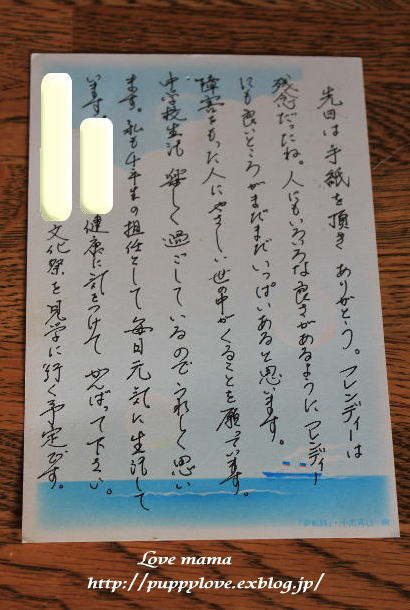 先日は手紙を頂きありがとう。フレンディーは
残念だったね。人にもいろいろな良さがあるようにフレンディー
にも良いところがまだまだいっぱいあると思います。
障害をもった人にやさしい世の中がくることを願っています。
中学校生活 楽しく過ごしているのでうれしく思い
ます。私も4年生の担任として毎日元気に生活して
います。
健康に気をつけて がんばって下さい。
文化祭を見学に行く予定です。
Love mama
http://puppylove.exblog.jp/